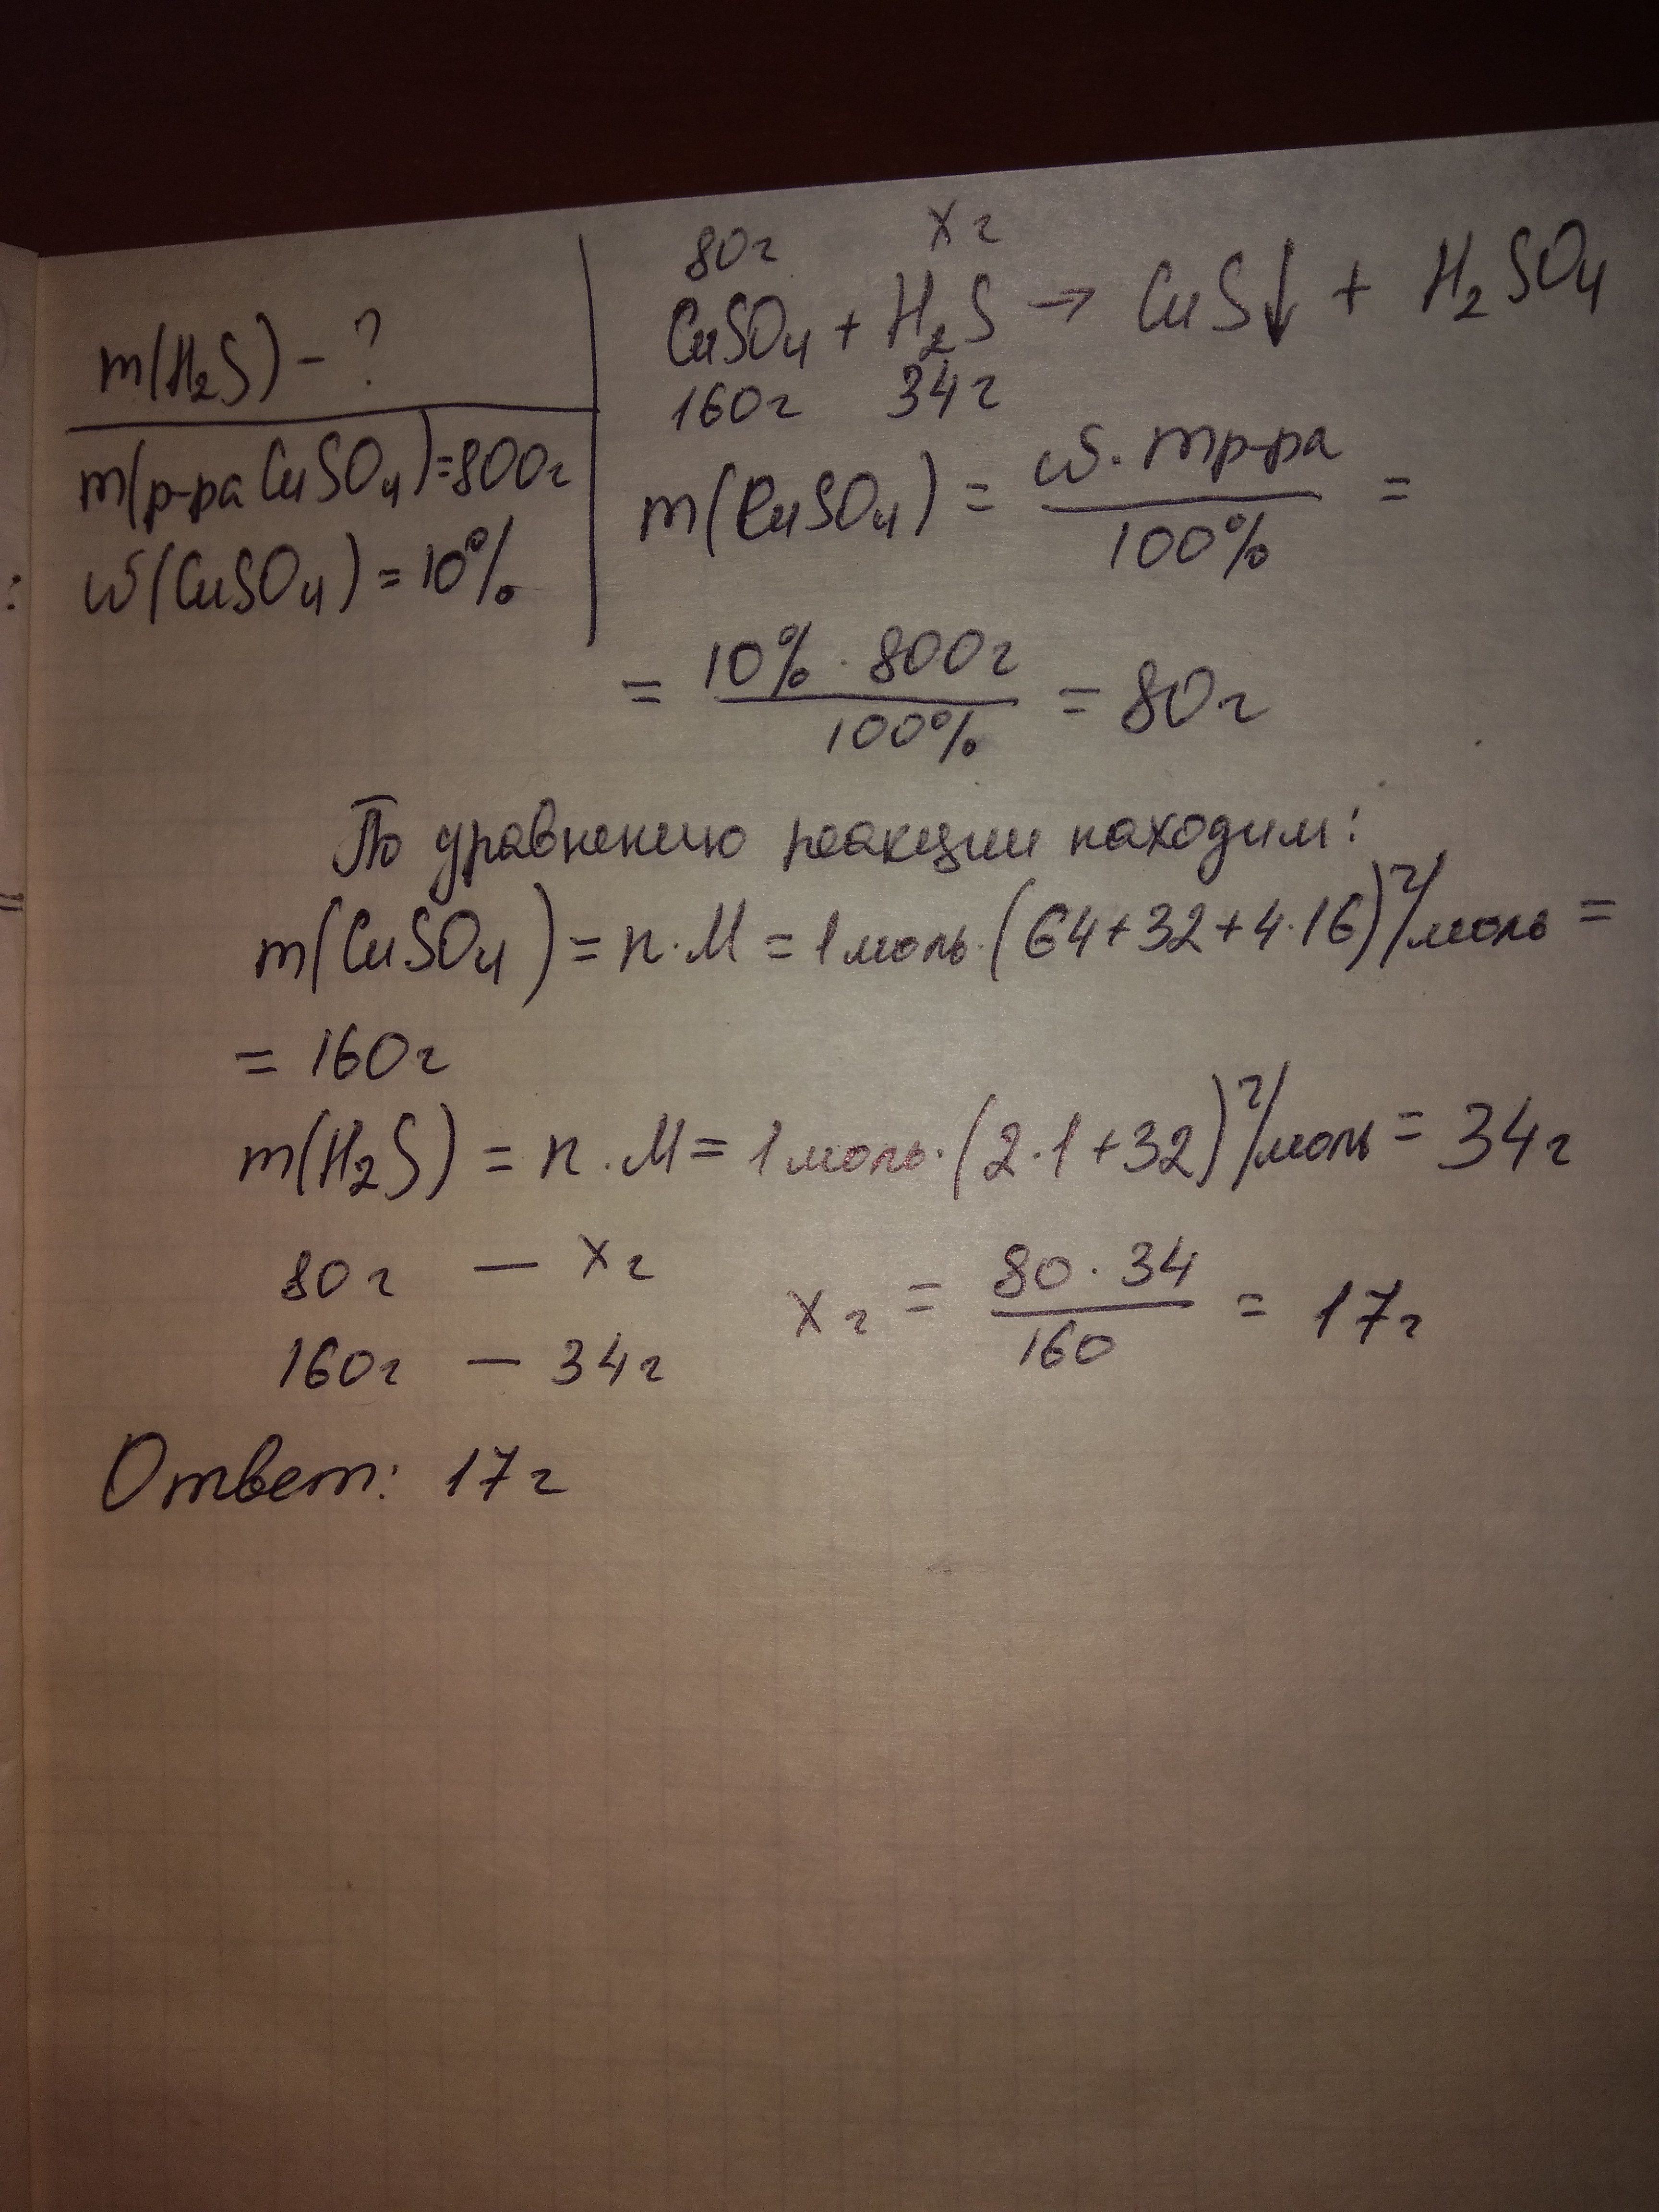 m(H₂S) – ?
m(р-ра CuSO₄)=800г
ω(CuSO₄) = 10%
80г xг
CuSO₄ + H₂S → CuS↓ + H₂SO₄
160г 34г
m(CuSO₄) = ω · mр-ра / 100% =
= 10% · 800г / 100% = 80г
По уравнению реакции находим:
m(CuSO₄) = n · M = 1 моль · (64+32+4·16) г/моль =
= 160г
m(H₂S) = n · M = 1 моль · (2·1+32) г/моль = 34г
80г — xг
160г — 34г
xг = 80 · 34 / 160 = 17г
Ответ: 17г